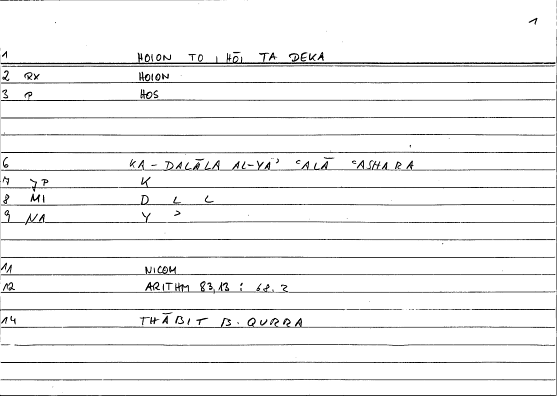 1
1 HOION TO ι HŌI TA DEKA
2 RX HOION
3 P HOS
6 KA - DALĀLA AL-YĀʾ ʿALĀ ʿASHARA
7 YP K
8 MI D L L
9 NA Y ʾ
11 NICOM
12 ARITHM 83,13 : 68.2
14 THĀBIT B. QURRA